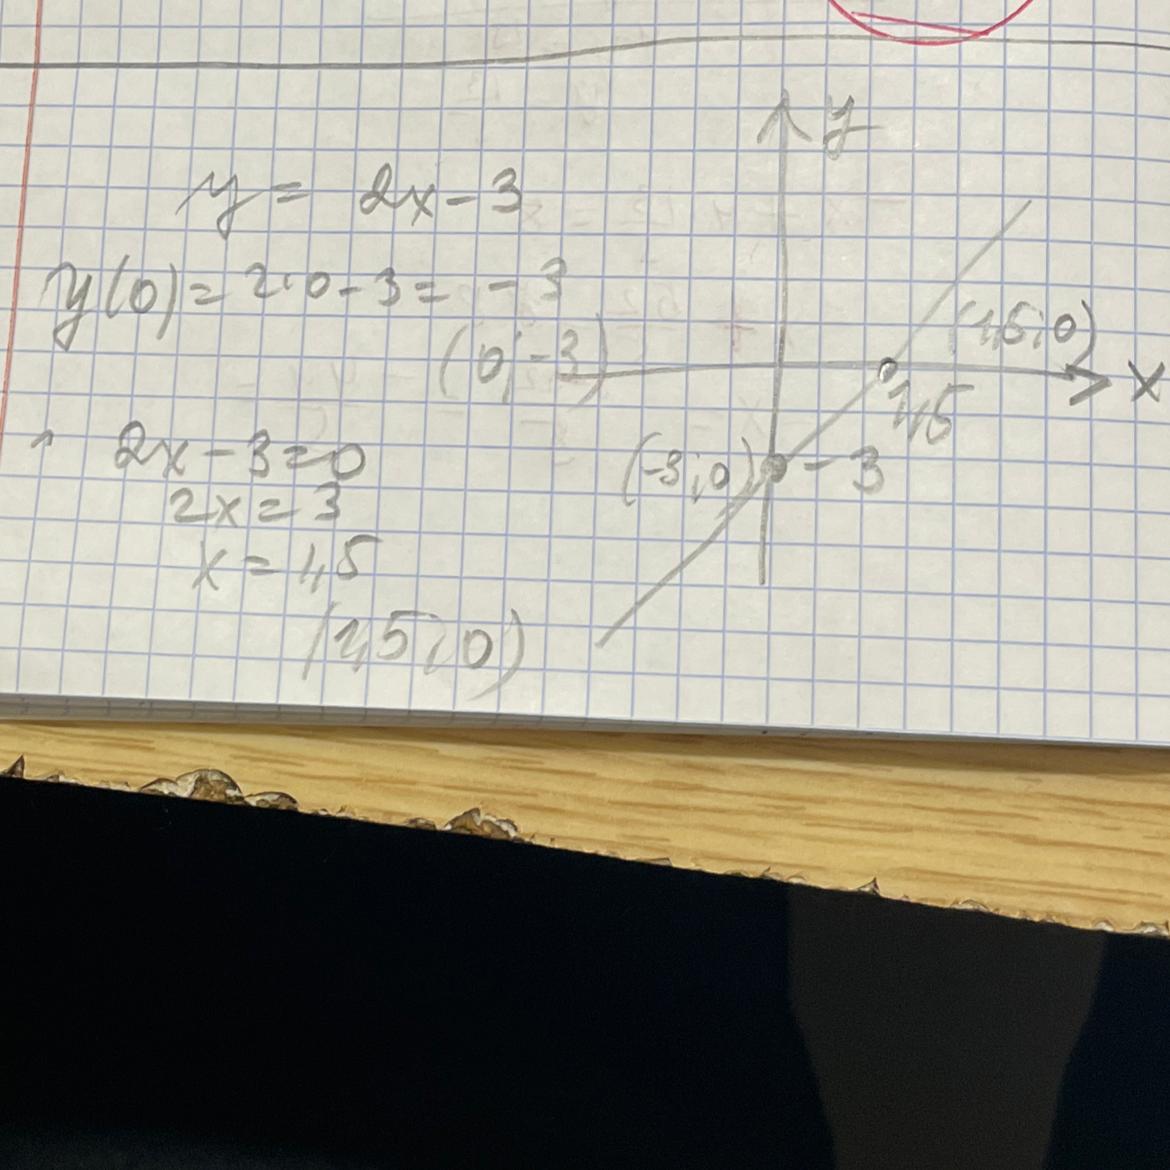 y = 2x - 3
y(0) = 2·0 - 3 = -3
(0; -3)
2x - 3 = 0
2x = 3
x = 1,5
(1,5; 0)
y
(1,5; 0)
x
1,5
(-3; 0)
-3